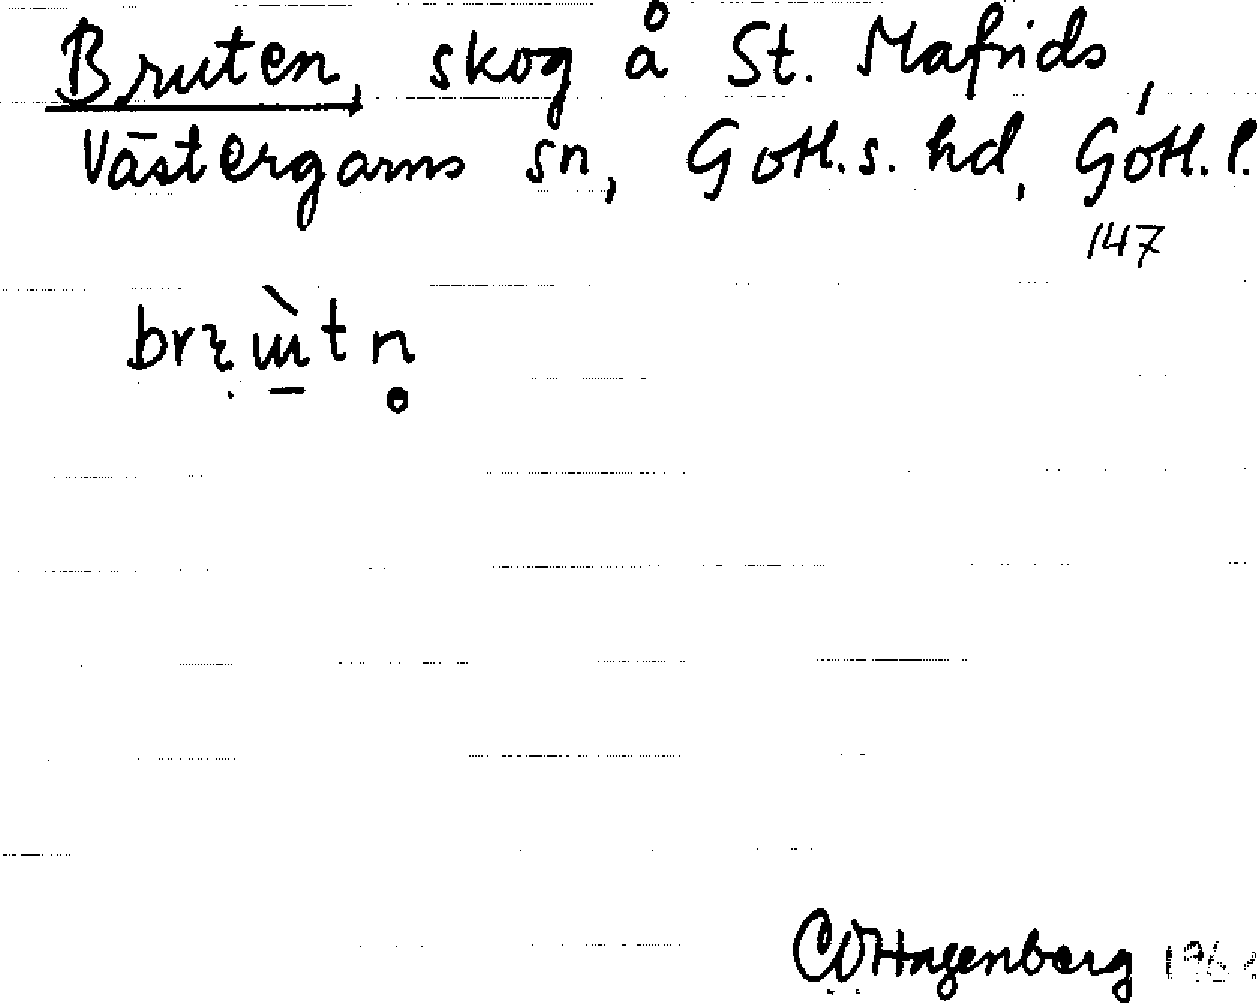 Bruten, skog å St. Mafrids,
Västergarns sn, Gotl. s. hd, Gotl. l.
147
CO Hagenberg